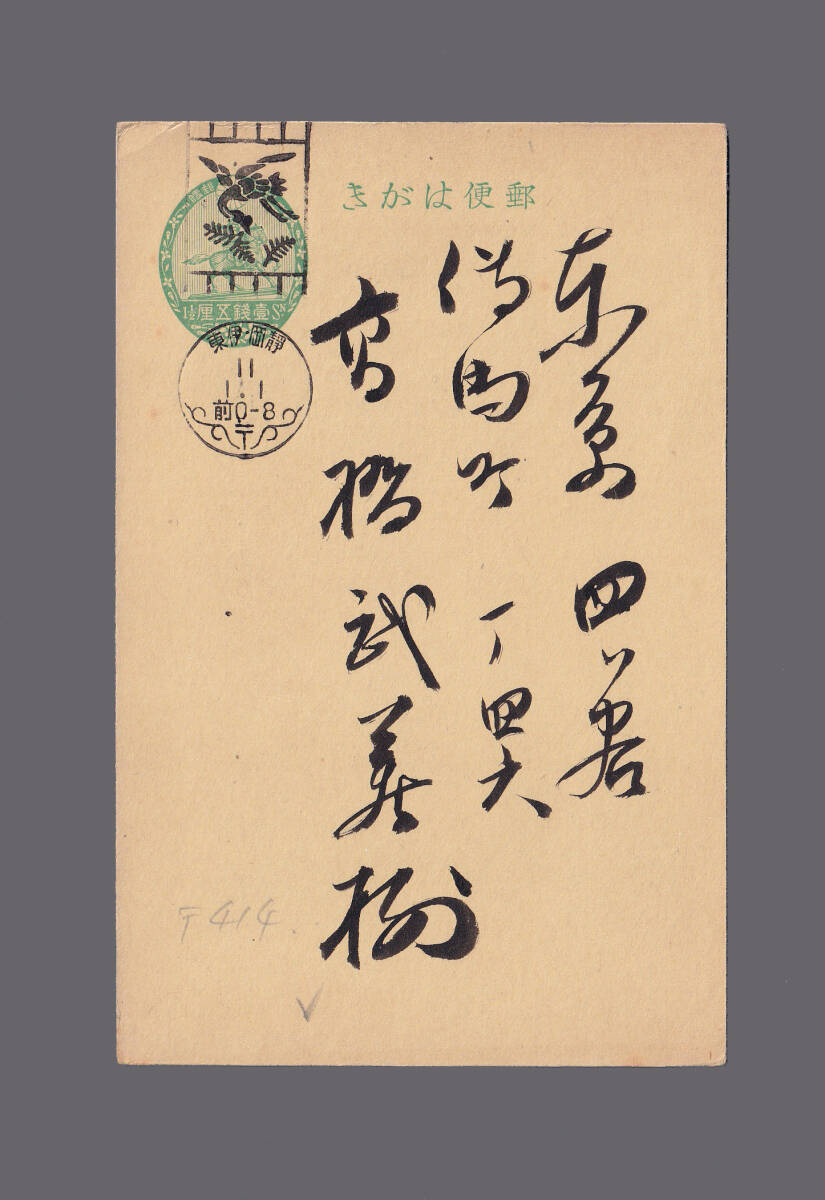 郵便はがき
東京 四ツ谷
傳馬町 一丁四六
高橋武義様
壹錢五厘
1½ SN
靜岡・伊東
11
1.1
前0-8
〒
〒414